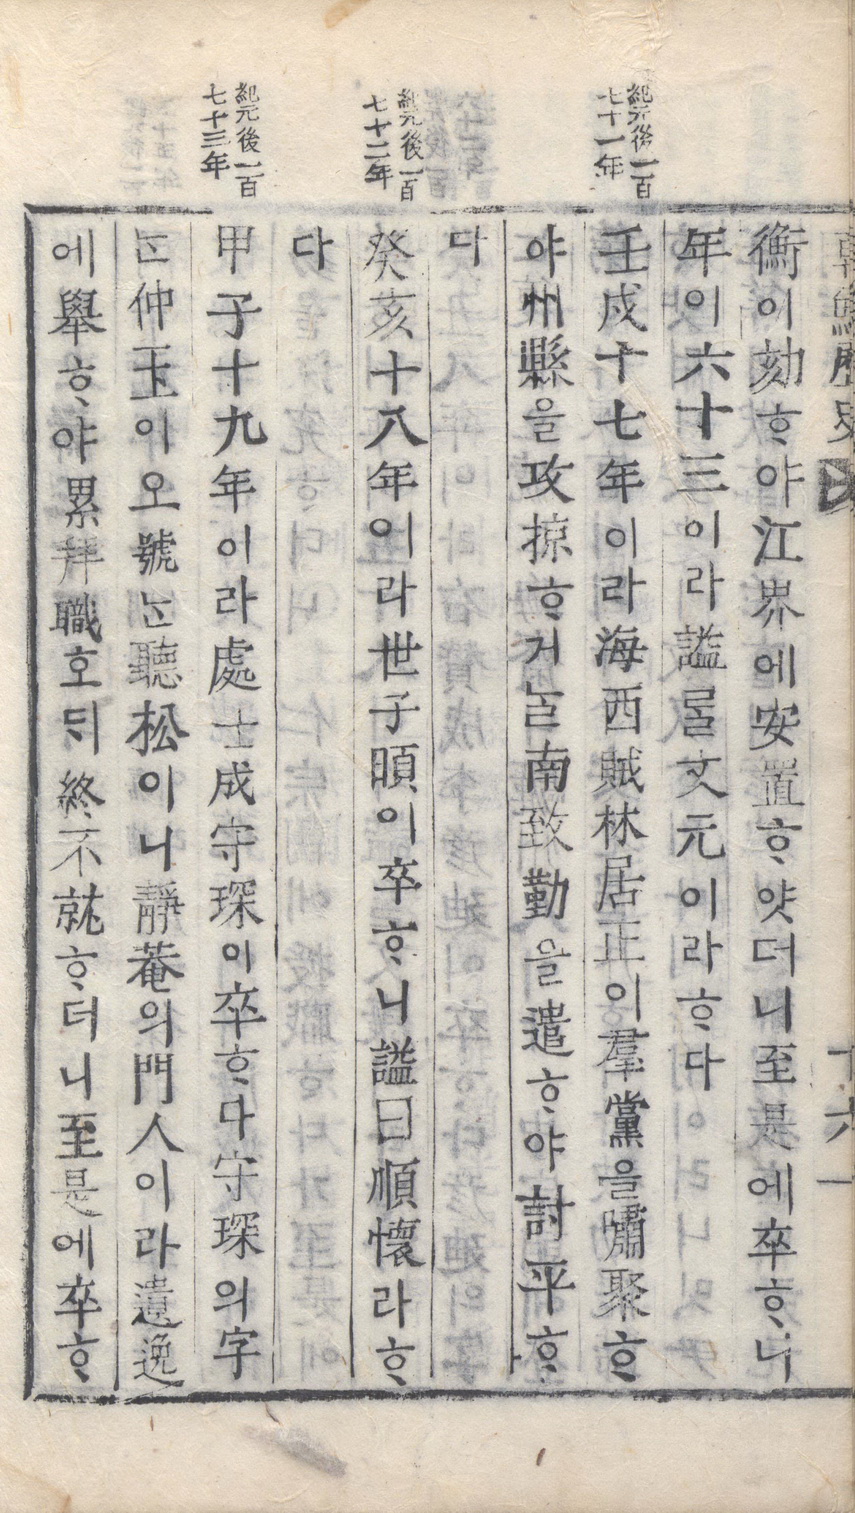 朝鮮歷史
十六
衡이劾ᄒᆞ야江界에安置ᄒᆞ얏더니至是에卒ᄒᆞ니
年이六十三이라謚ᄅᆞᆯ文元이라ᄒᆞ다
紀元後一百
七十一年
壬戌十七年이라海西賊林居正이羣黨을嘯聚ᄒᆞ
야州縣을攻掠ᄒᆞ거ᄂᆞᆯ南致勤을遣ᄒᆞ야討平ᄒᆞ
다
紀元後一百
七十二年
癸亥十八年이라世子暊이卒ᄒᆞ니謚曰順懷라ᄒᆞ
다
紀元後一百
七十三年
甲子十九年이라處士成守琛이卒ᄒᆞ다守琛의字
ᄂᆞᆫ仲玉이오號ᄂᆞᆫ聽松이니靜菴의門人이라遺逸
에擧ᄒᆞ야累拜職호ᄃᆡ終不就ᄒᆞ더니至是에卒ᄒᆞ